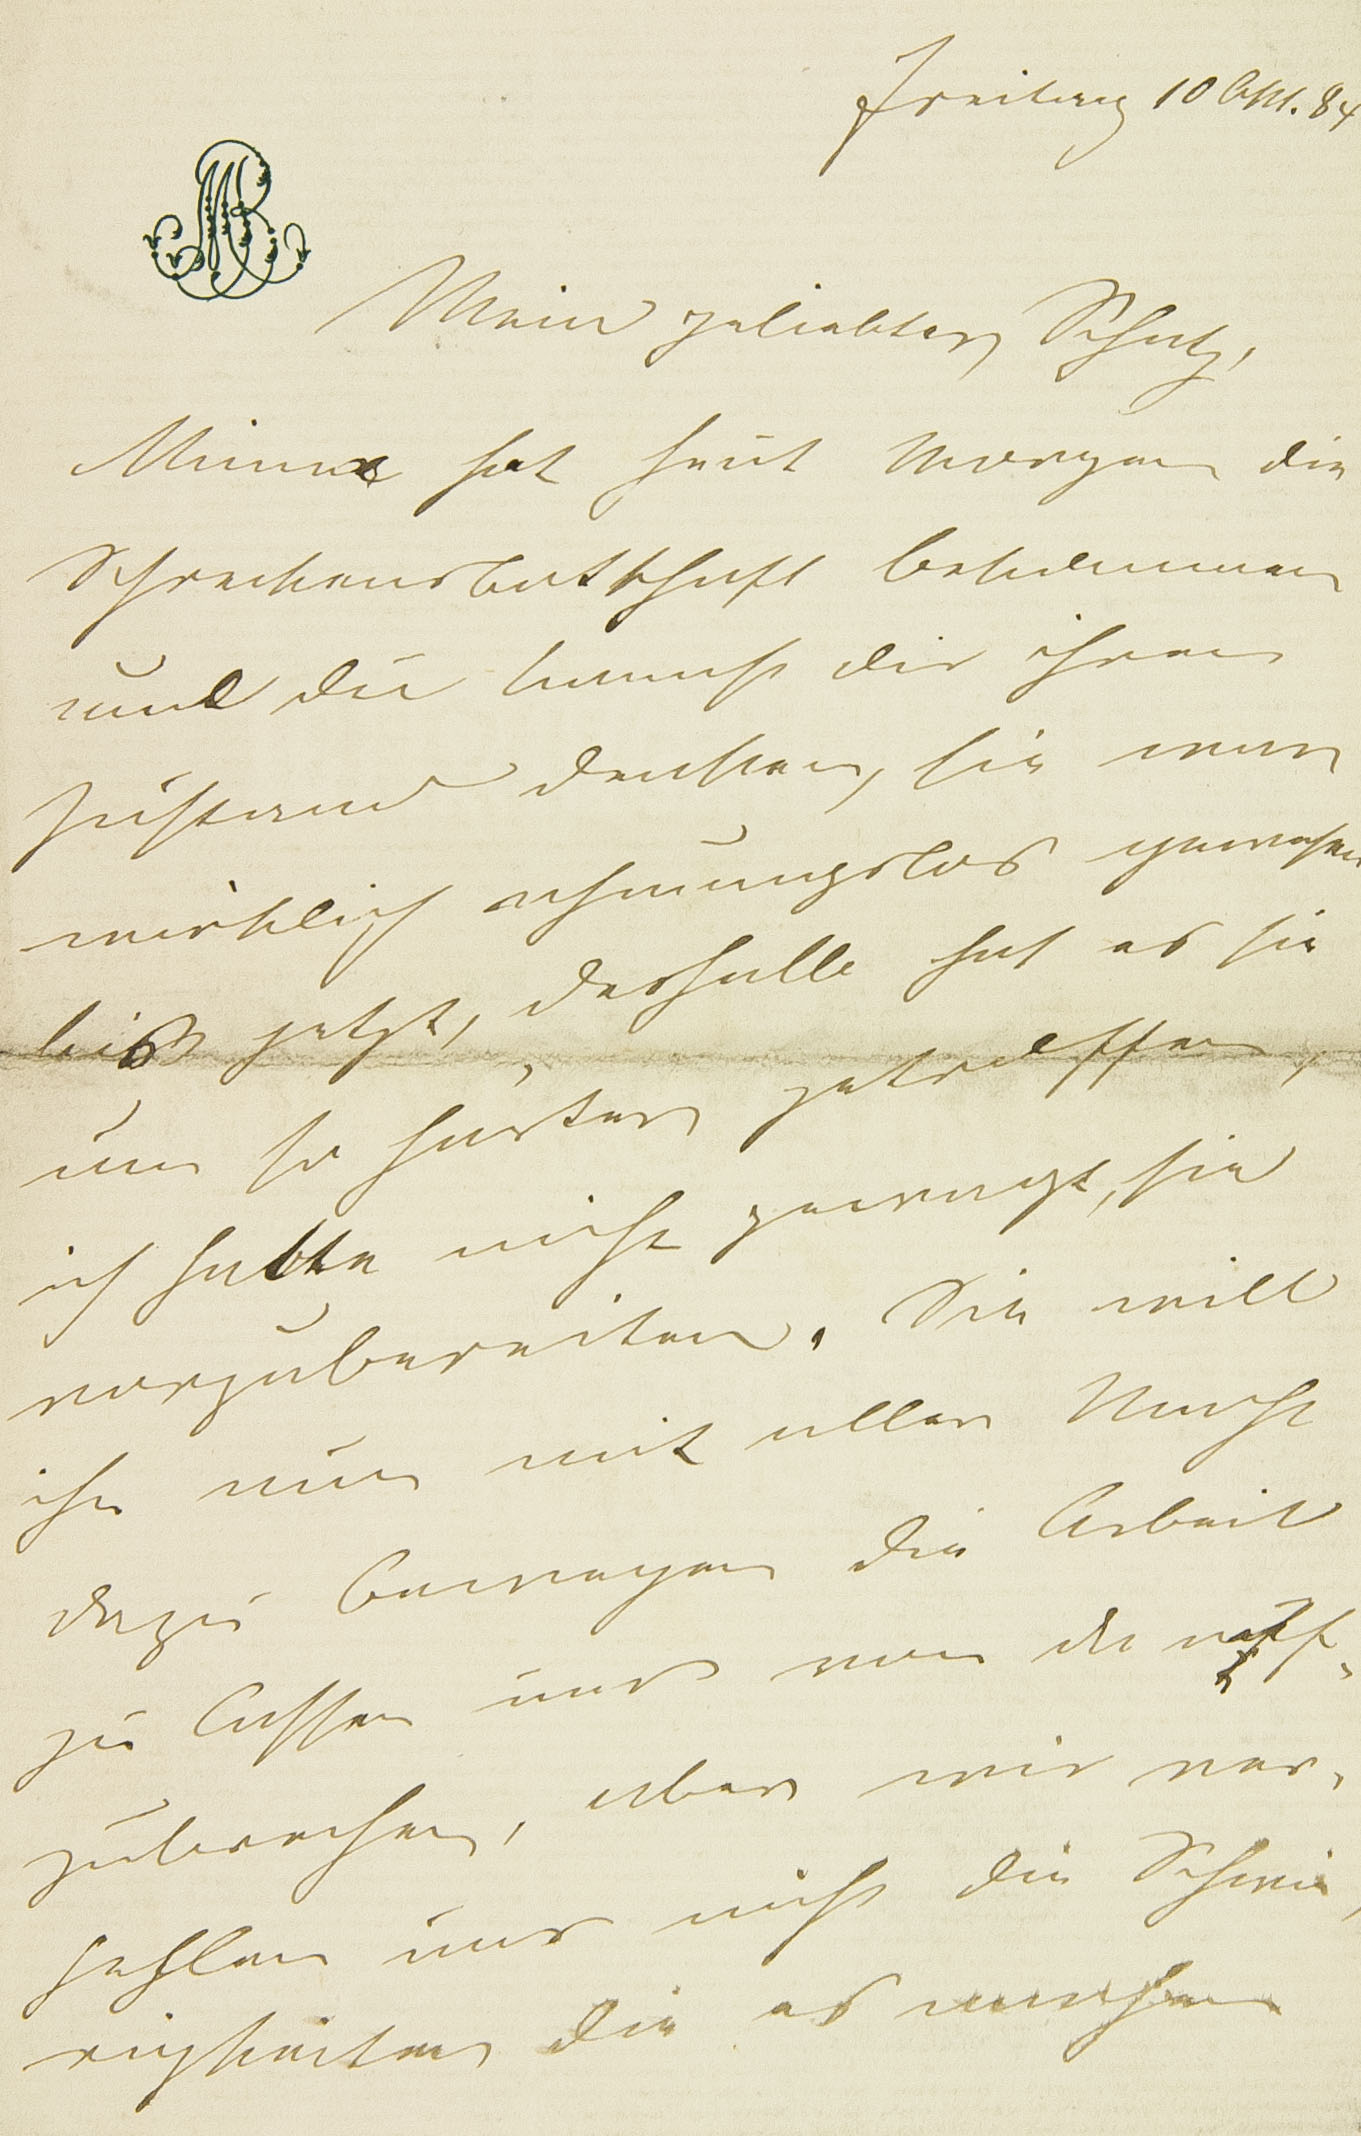 Freitag 10 Okt. 84
MB
Mein geliebter Schatz,
Minna hat heut Morgen die
Schreckensbotschaft bekommen
und du kannst dir ihren
Zustand denken, sie war
wirklich ahnungslos gewesen
bis jetzt, deshalb hat es sie
um so härter getroffen,
ich hatte nicht gewagt, sie
vorzubereiten. Sie will
ihn nun mit aller Macht
dazu bewegen die Arbeit
zu lassen und von da auf-
zubrechen, aber wir ver-
hehlen uns nicht die Schwie
rigkeiten die es machen